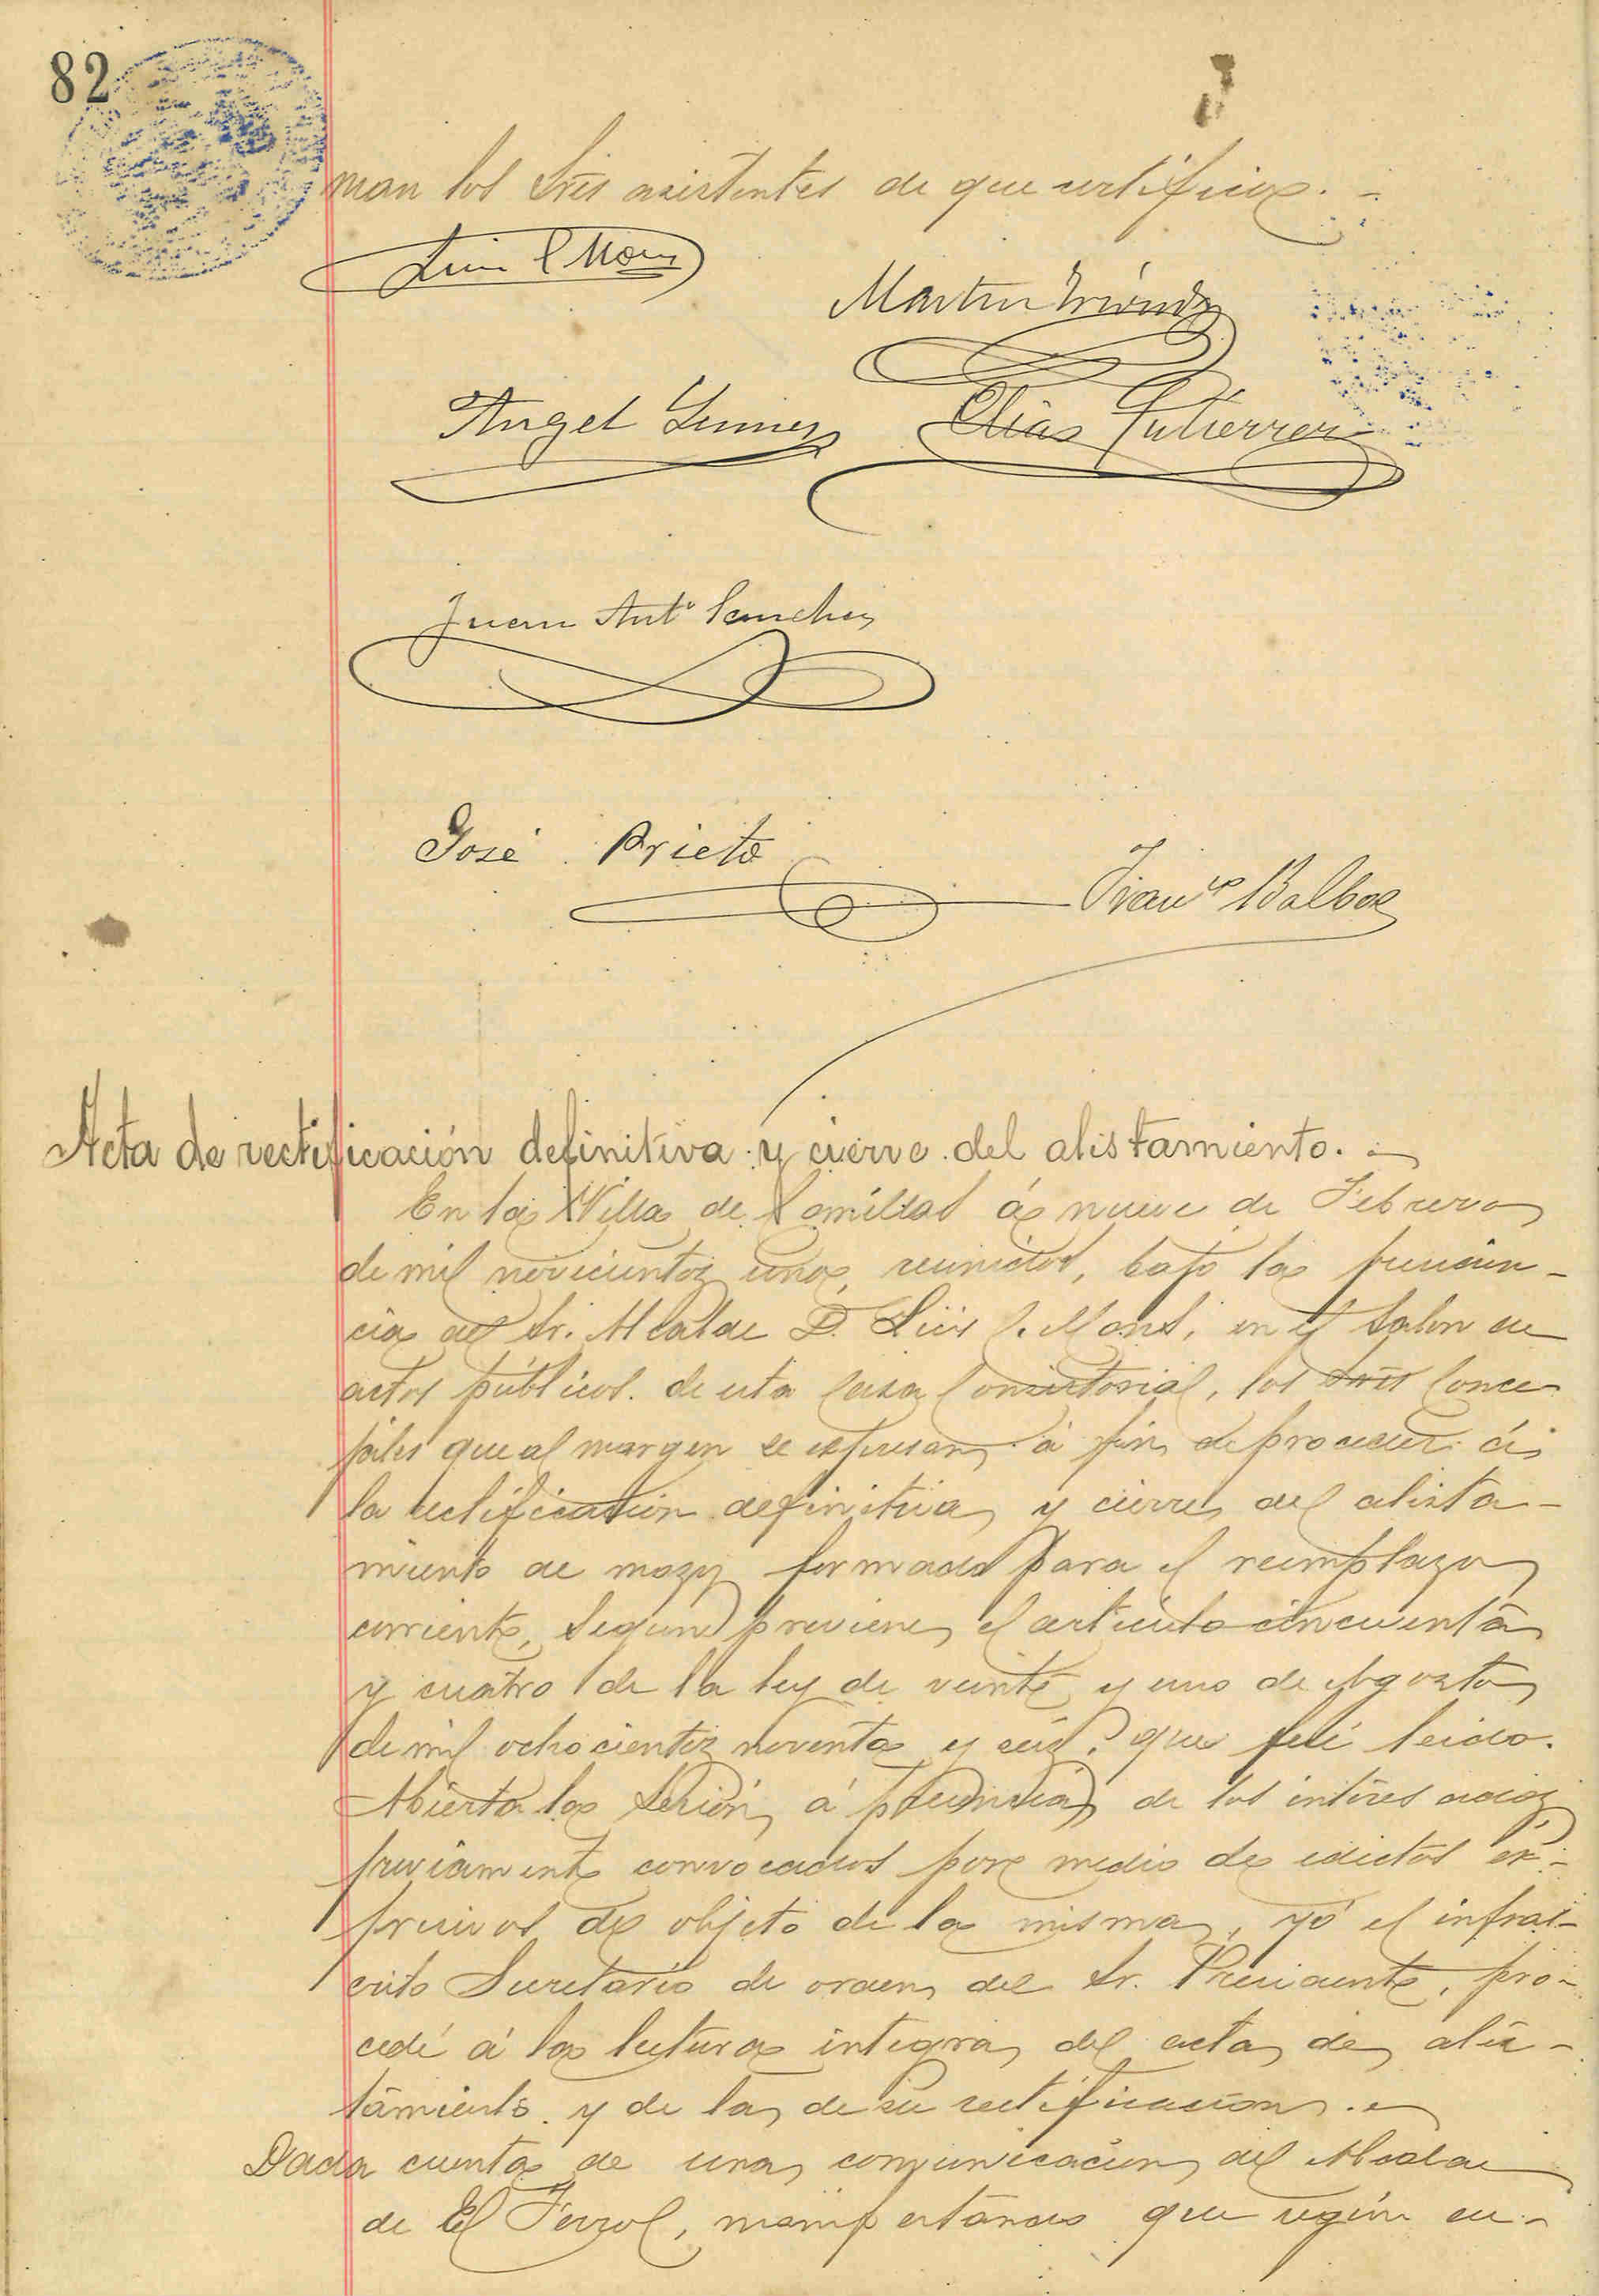 82
man los Sres asistentes de que certifico. -
Luis C Mons
Martin
Angel
Elias Gutierrez
Juan Antº Sanchez
José Prieto
Franco Balbas
Acta de rectificación definitiva y cierre del alistamiento. -
En la Villa de Comillas á nueve de Febrero
de mil novecientos uno, reunidos, bajo la presiden-
cia del Sr. Alcalde D. Luis C. Mons, en el Salon de
actos públicos de esta Casa Consistorial, los Sres Conce-
jales que al margen se expresan á fin de proceder á
la rectificación definitiva y cierre del alista-
miento de mozos formado para el reemplazo
corriente, segun previene el articulo cincuenta
y cuatro de la ley de veinte y uno de Agosto
de mil ochocientos noventa y seis, que fué leido.
Abierta la Sesión, á presencia de los interesados
previamente convocados por medio de edictos ex-
presivos del objeto de la misma, yó el infras-
crito Secretario de orden del Sr. Presidente, pro-
cedé á la lectura integra del acta de alis-
tamiento y de la de su rectificacion. -
Dada cuenta de una comunicación del Alcalde
de El Ferrol, manifestando que según en-